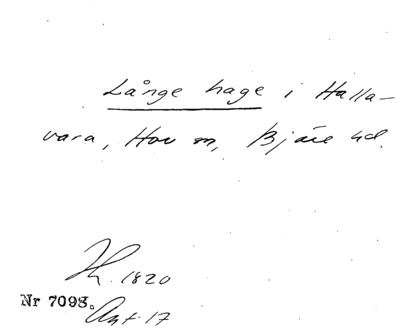 Långe hage i Halla-
vara, Hov sn, Bjäre hd.
Th. 1820
Nr 7098.
Ant. 17